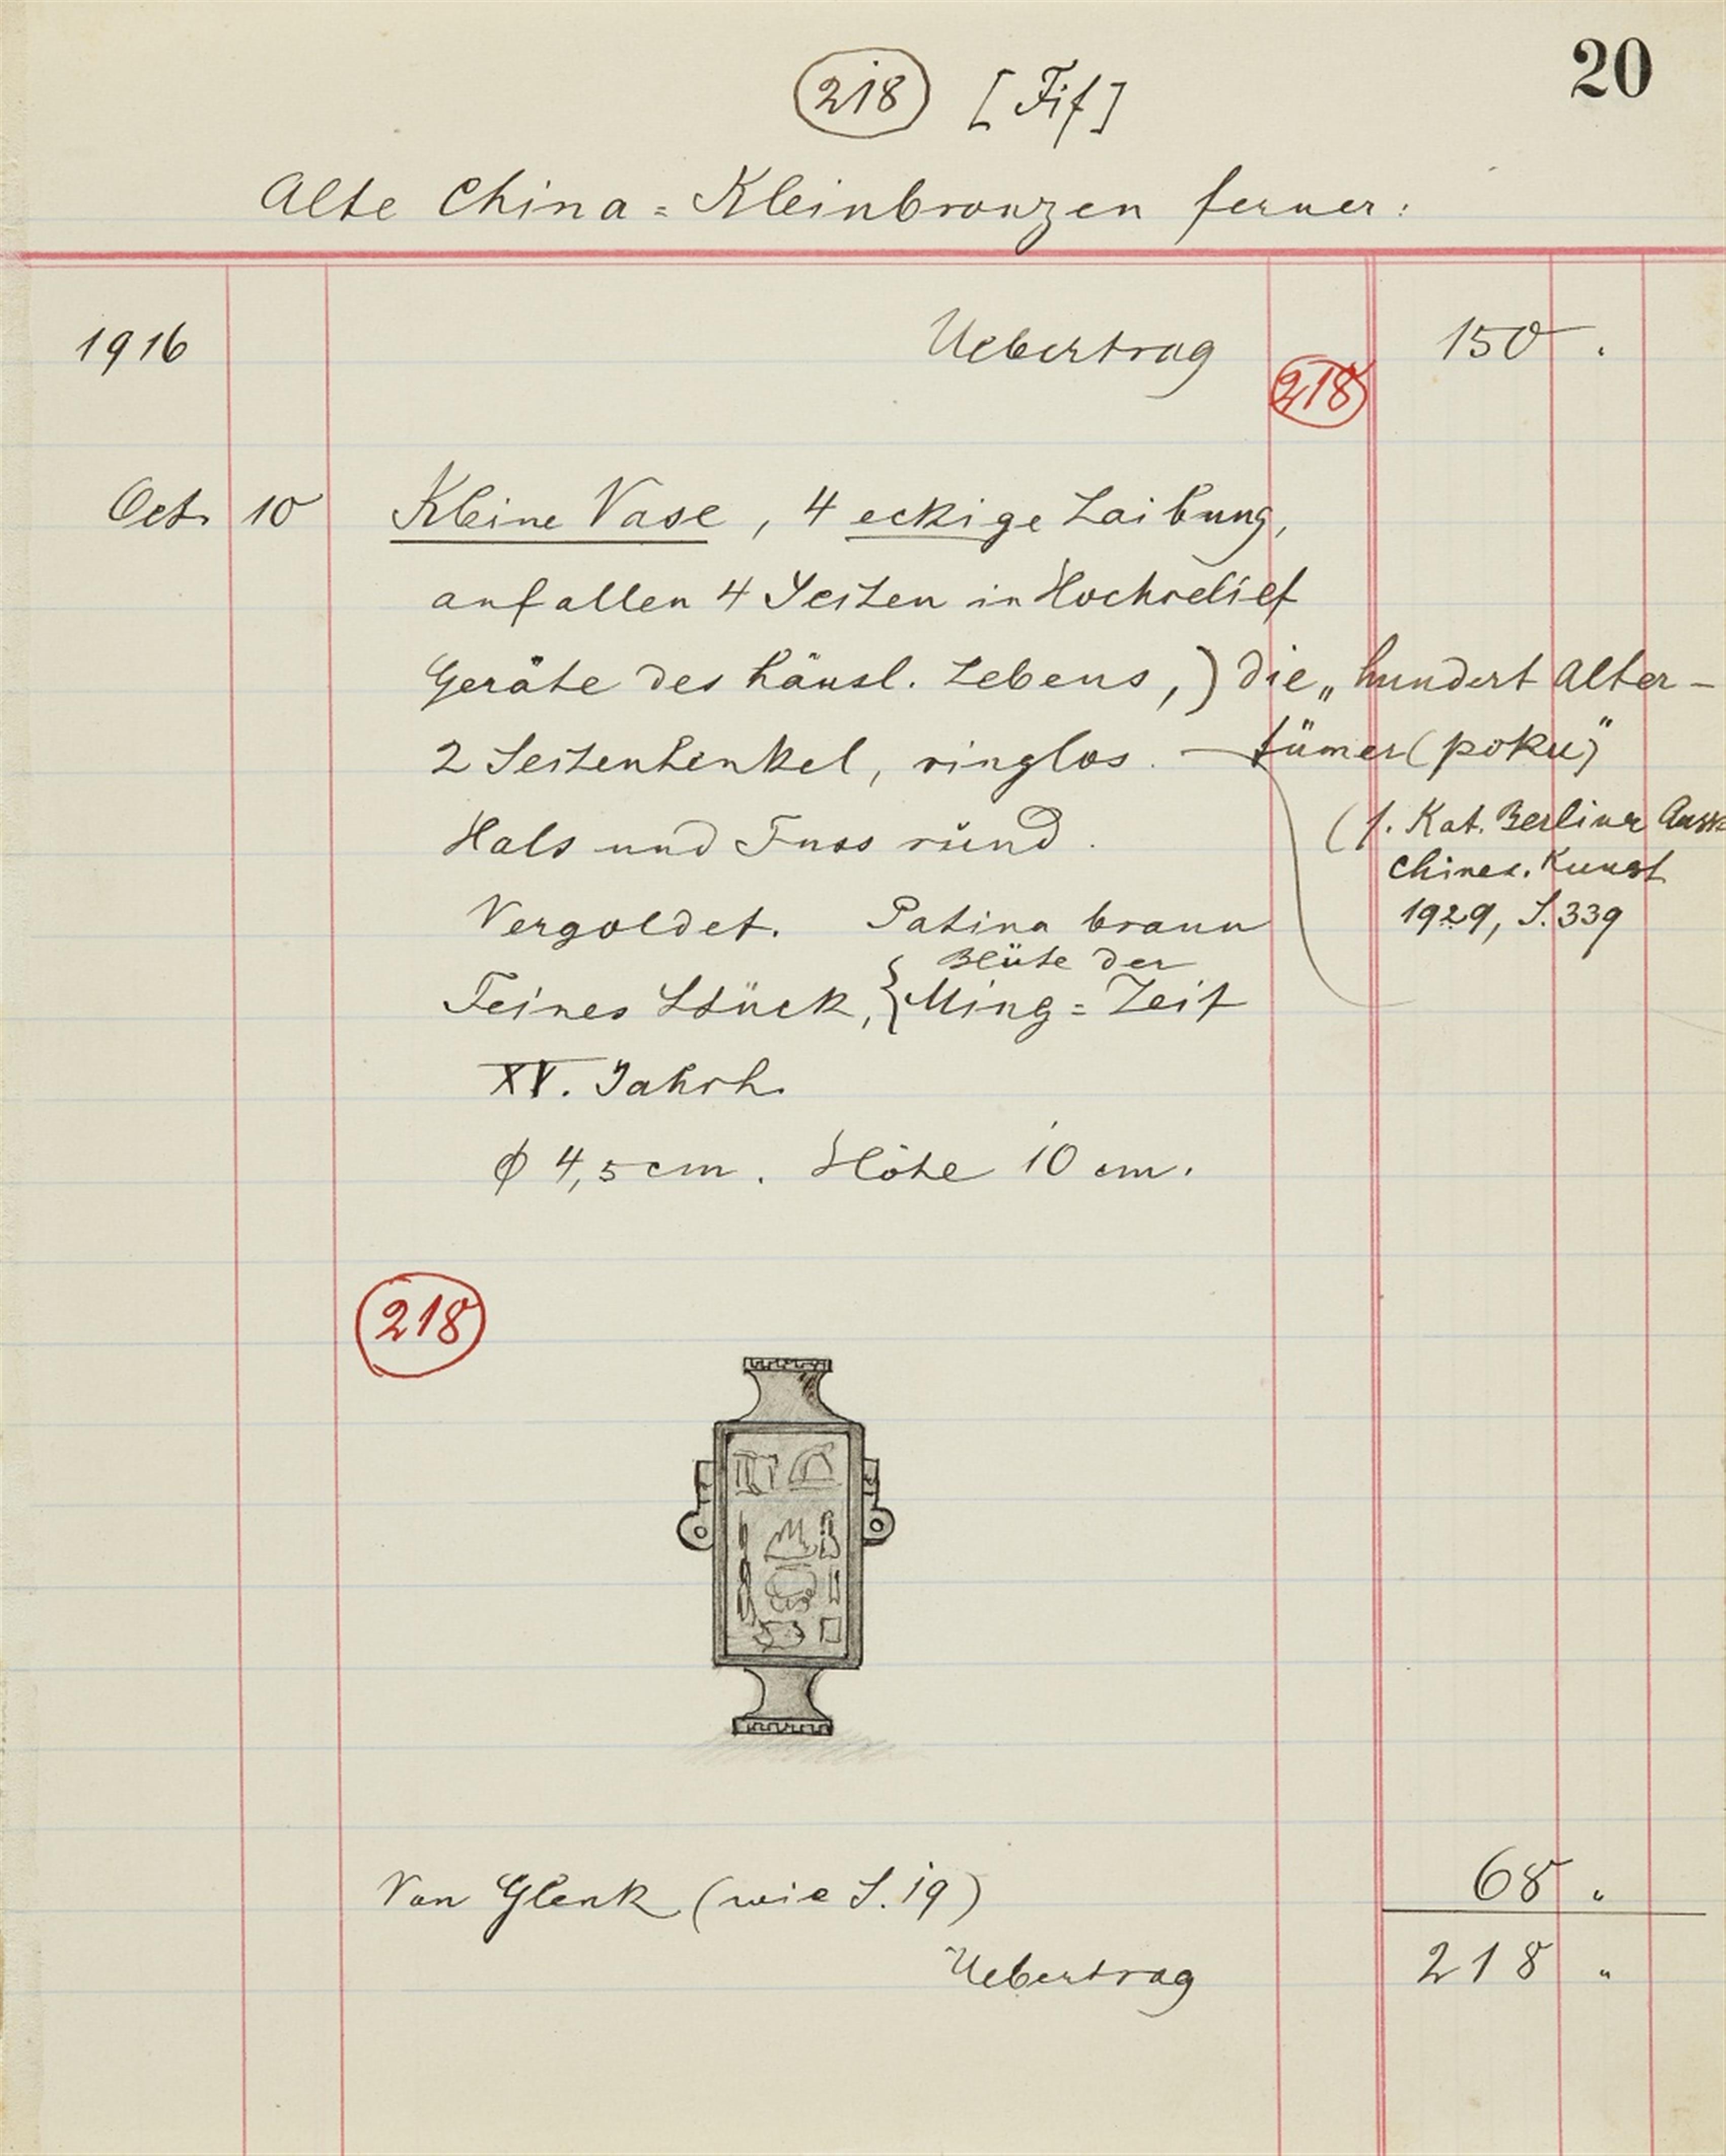 20
218 [Fif]
Alte China = Kleinbronzen ferner:
1916 Uebertrag 150 .
218
Oct. 10 Kleine Vase, 4 eckige Laibung,
auf allen 4 Seiten in Hochrelief
Geräte des häusl. Lebens,) die „hundert Alter-
2 Seitenhenkel, ringlos. — tümer (poku)"
Hals und Fuss rund.
(s. Kat. Berliner Ausst.
chines. Kunst
1929, S. 339
Vergoldet. Patina braun
Blüte der
Feines Stück, { Ming = Zeit
XV. Jahrh.
ϕ 4,5 cm. Höhe 10 cm.
218
Von Glenk (wie S. 19) 68 "
Uebertrag 218 "